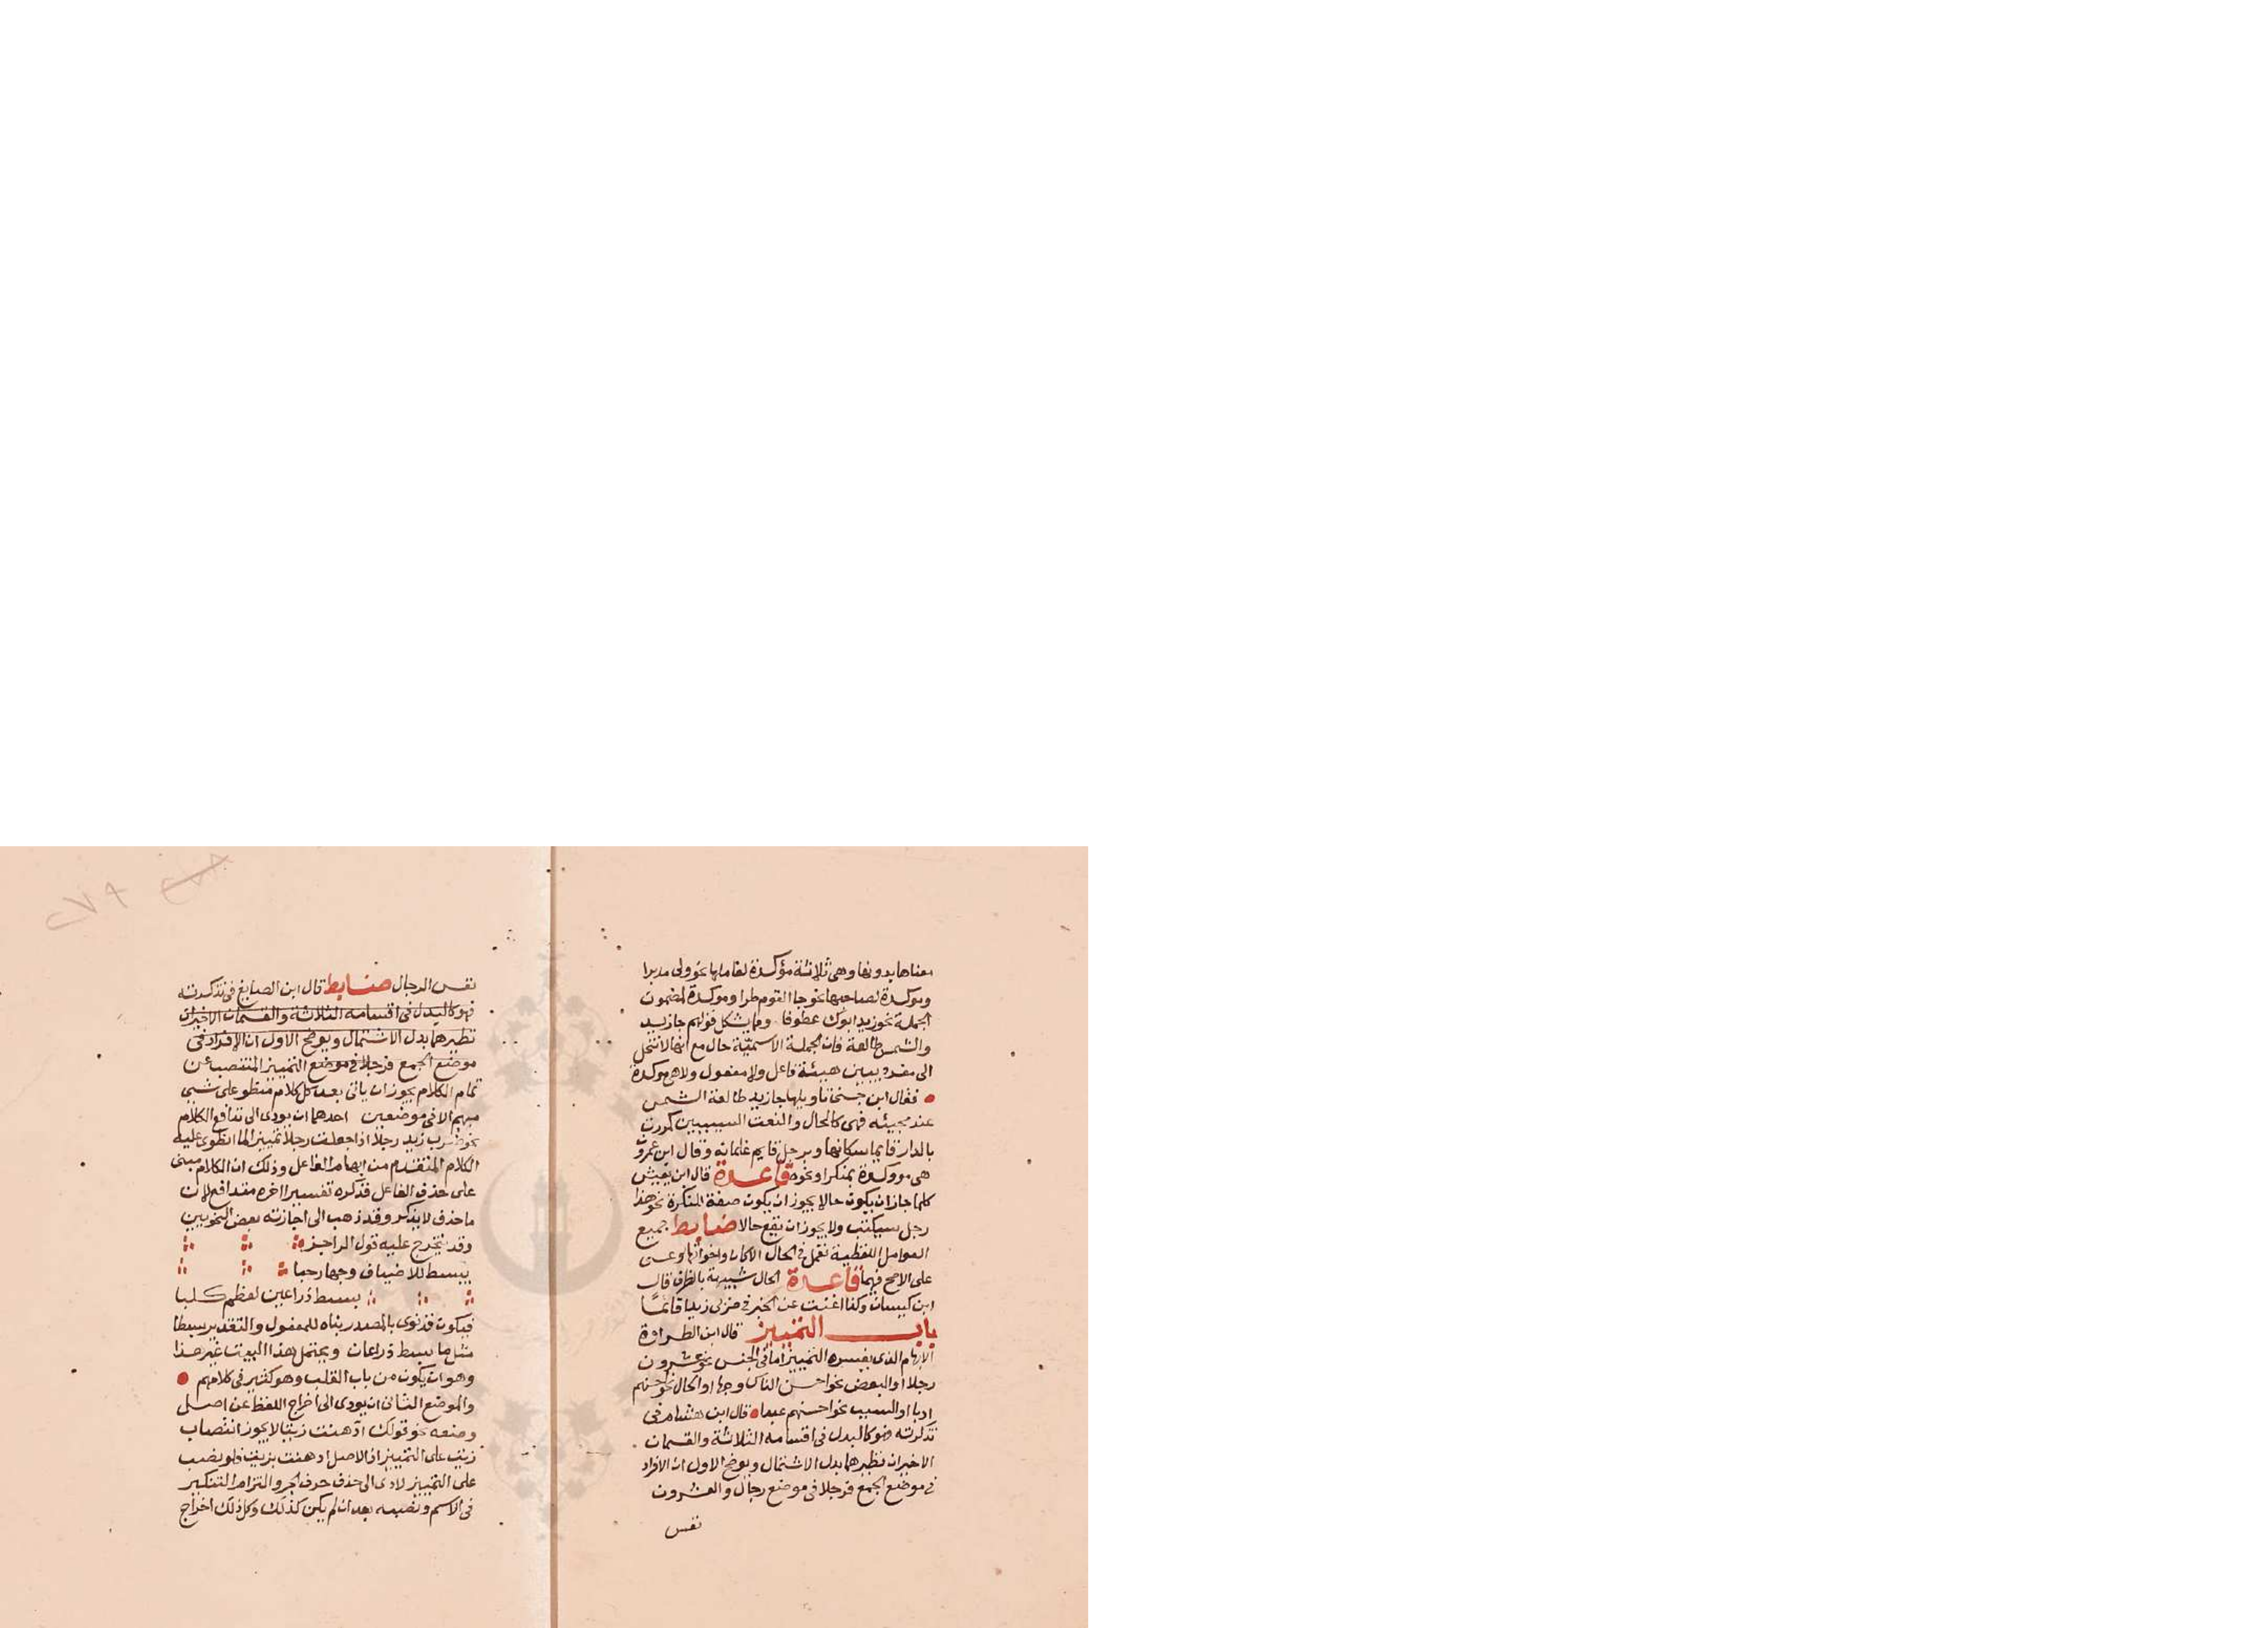 معناها بدونها وهى ثلاثة مؤكدة لعاملها نحو ولى مدبرا
وموكدة لصاحبها نحو جا القوم طرا وموكدة لمضمون
الجملة نحو زيد ابوك عطوفا ومما يشكل قولهم جا زيد
والشمس طالعة فان الجملة الاسمية حال مع انها لا تنحل
الى مفرد يبين هيئة فاعل ولا مفعول ولا هى موكدة
فقال ابن جنى تاويلها جا زيد طالعة الشمس
عند مجيئه فهى كالحال والنعت السببيين كمررت
بالدار قايما سكانها وبرجل قايم غلمانه وقال ابن عمرون
هى موولة بمنكرا ونحوه قاعدة قال ابن يعيش
كلما جاز ان يكون حالا يجوز ان يكون صفة للنكرة نحو هذا
رجل سيكتب ولا يجوز ان يقع حالا ضابط جميع
العوامل اللفظية تعمل فى الحال الا كان واخواتها وعسى
على الاصح فيهما قاعدة الحال شبيهة بالظرف قال
ابن كيسان وكذا اغنت عن الخبر فى ضربى زيدا قائمًا
باب التمييز قال ابن الطراوة
الابهام الذى يفسره التمييز اما فى الجنس نحو عشرون
رجلا او البعض نحو احسن الناس وجها او الحال نحو احسنهم
ادبا او السبب نحو احسنهم عبدا قال ابن هشام فى
تذكرته فهو كالبدل فى اقسامه الثلاثة والقسمان
الاخيران نظيرهما بدل الاشتمال ويوضح الاول ان الافراد
فى موضع الجمع فرجلا فى موضع رجال والعشرون
نفس
٢٧٩
نفس الرجال ضابط قال ابن الصايغ فى تذكرته
فهو كالبدل فى اقسامه الثلاثة والقسمان الاخيران
نظيرهما بدل الاشتمال ويوضح الاول ان الافراد فى
موضع الجمع فرجلا فى موضع التمييز المنتصب عن
تمام الكلام يجوز ان ياتى بعد كل كلام منطو على شى
مبهم الا فى موضعين احدهما ان يودى الى تدافع الكلام
نحو ضرب زيد رجلا اذا جعلت رجلا تمييزا لما انطوى عليه
الكلام المتقدم من ابهام الفاعل وذلك ان الكلام مبنى
على حذف الفاعل فذكره تفسيرا اخره متدافع لان
ما حذف لا يذكر وقد ذهب الى اجازته بعض النحويين
وقد يتخرج عليه قول الراجز
يبسط للاضياف وجها رحبا
بسط ذراعين لعظم كلبا
فيكون قد نوى بالمصدر بناه للمفعول والتقدير بسطا
مثل ما بسط ذراعان ويحتمل هذا البيت غير هذا
وهو ان يكون من باب القلب وهو كثير فى كلامهم
والموضع الثانى ان يودى الى اخراج اللفظ عن اصل
وضعه نحو قولك ادهنت زيتا لا يجوز انتصاب
زيت على التمييز اذ الاصل ادهنت بزيت فلو نصب
على التمييز لادى الى حذف حرف الجر والتزام التنكير
فى الاسم ونصبه بعد ان لم يكن كذلك وكل ذلك اخراج